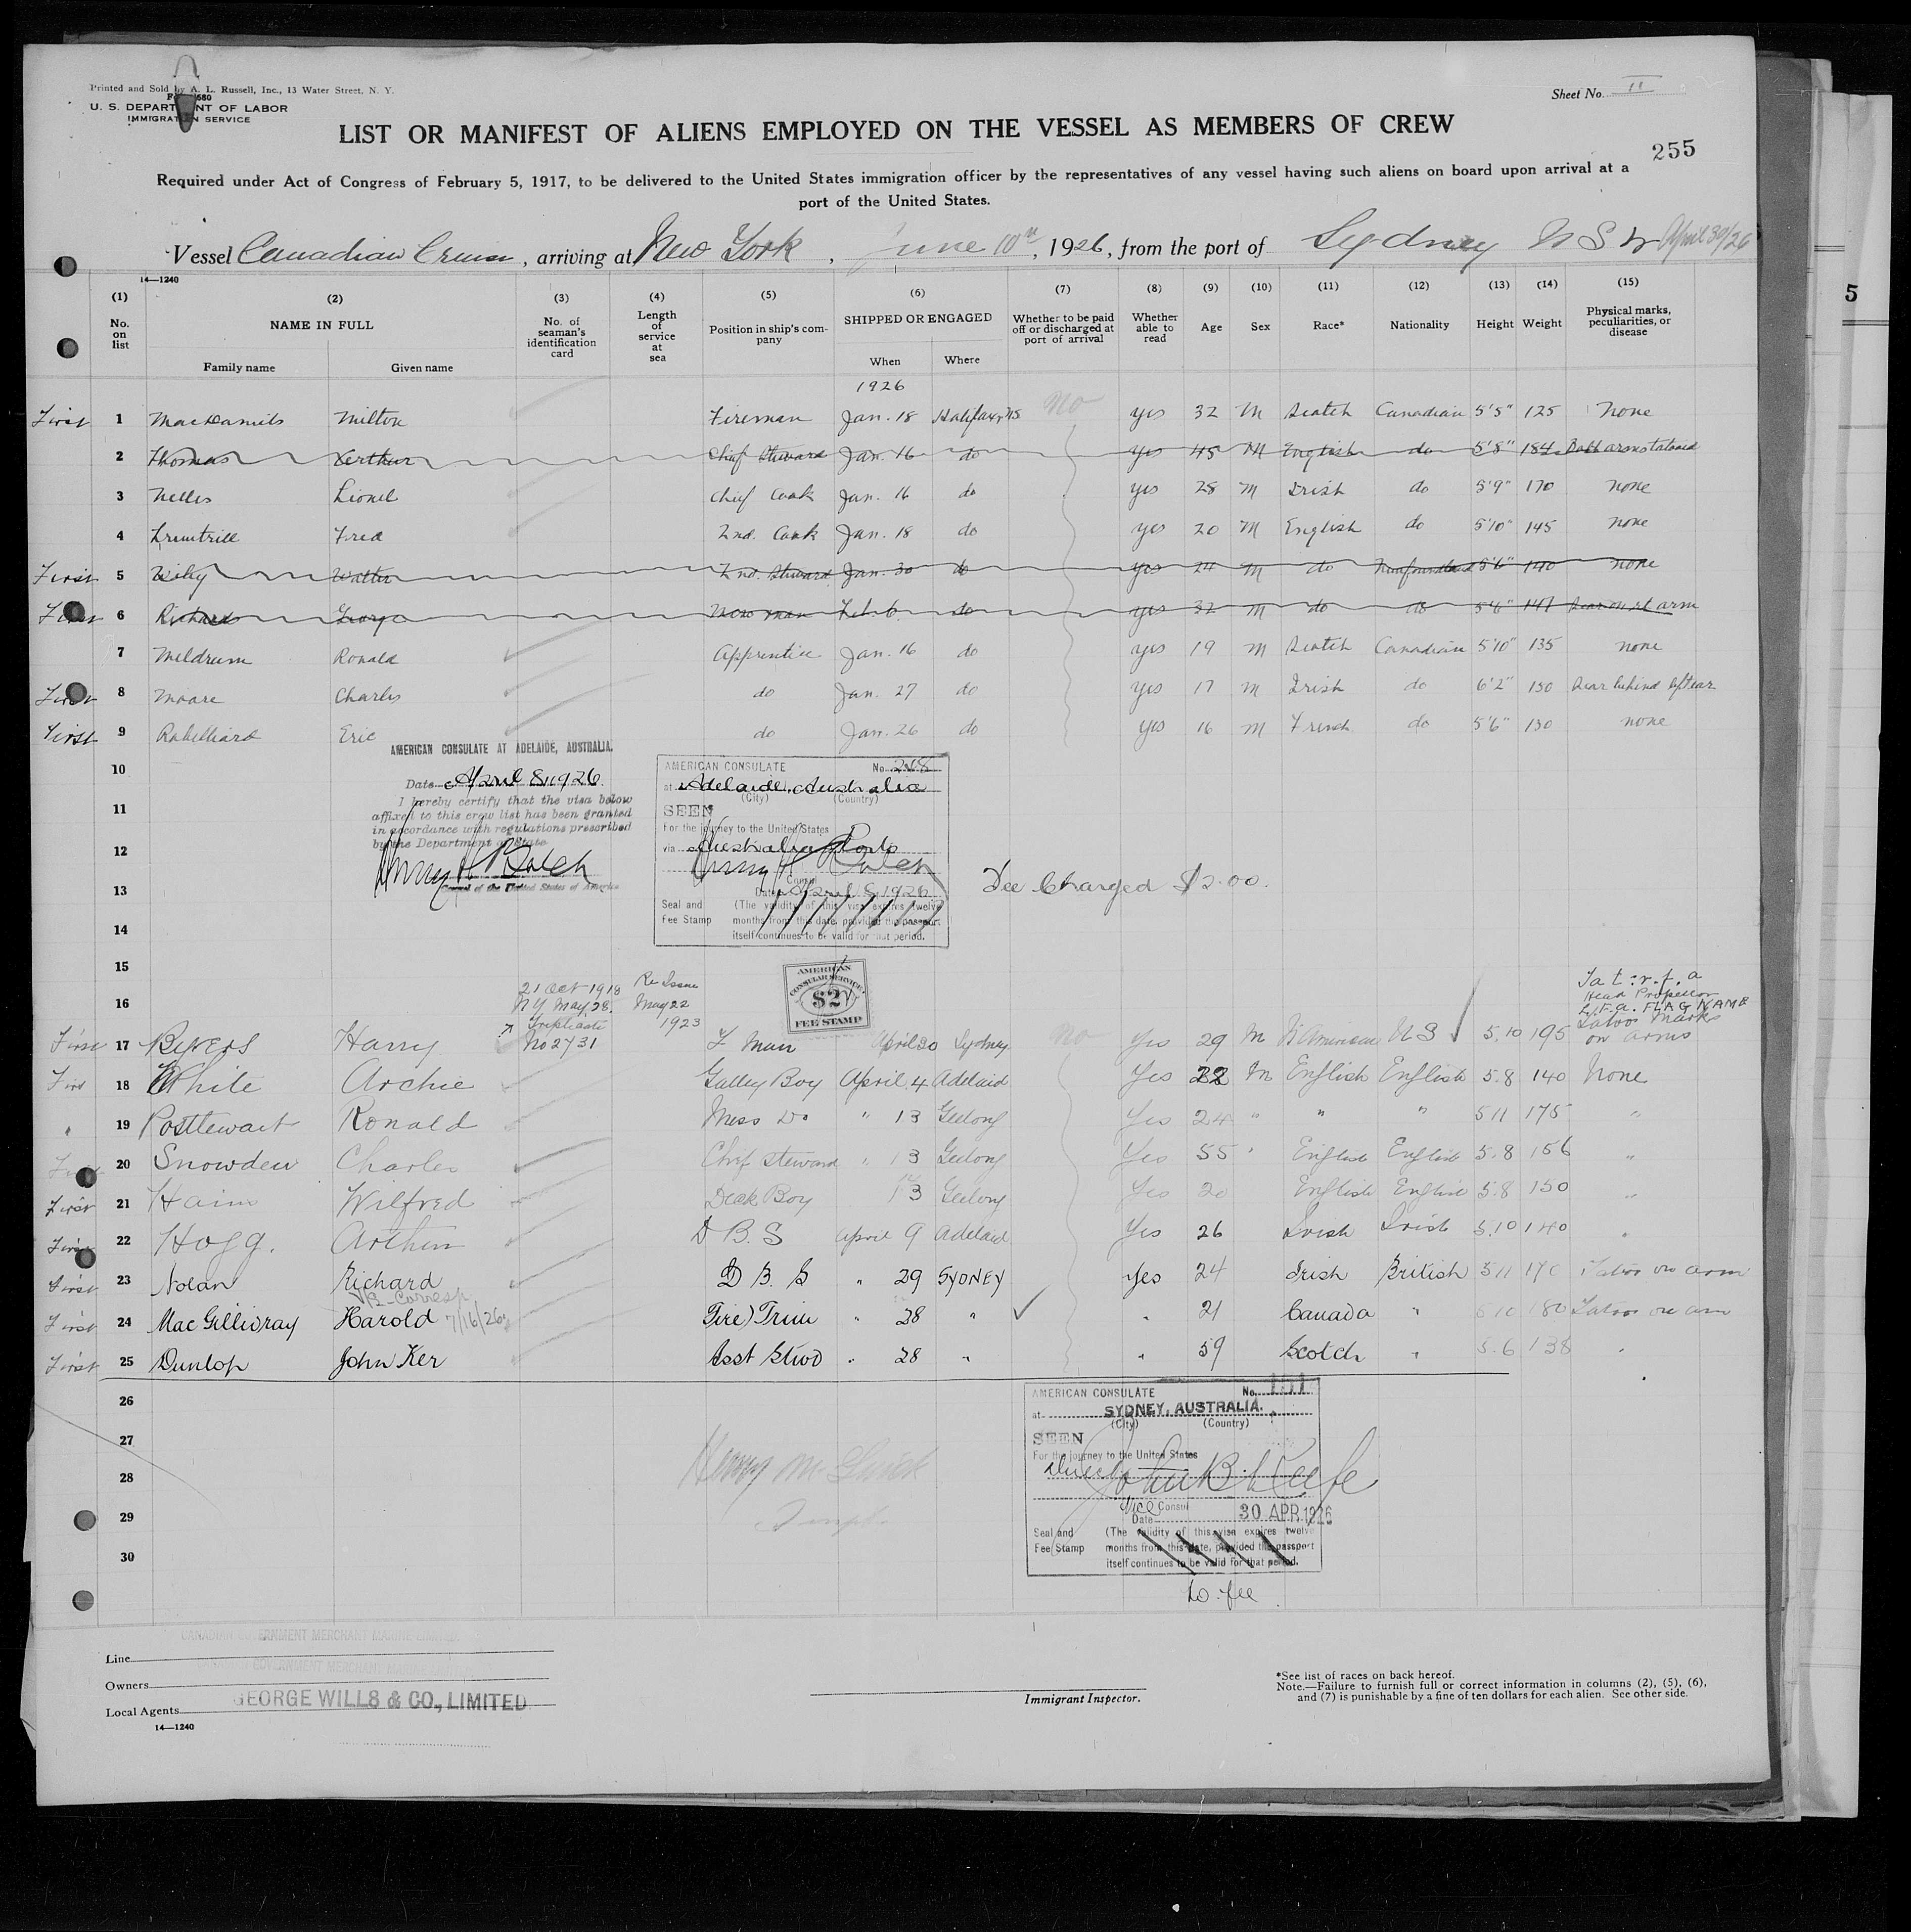 Printed and Sold by A. L. Russell, Inc., 13 Water Street, N. Y.
U. S. DEPARTMENT OF LABOR
IMMIGRATION SERVICE
Sheet No. II
LIST OR MANIFEST OF ALIENS EMPLOYED ON THE VESSEL AS MEMBERS OF CREW
255
Required under Act of Congress of February 5, 1917, to be delivered to the United States immigration officer by the representatives of any vessel having such aliens on board upon arrival at a
port of the United States.
Vessel Canadian Cruiser, arriving at New York, June 10th, 1926, from the port of Sydney N S W April 30/26
14—1240
(1) (2) (3) (4) (5) (6) (7) (8) (9) (10) (11) (12) (13) (14) (15)
No. on list
NAME IN FULL
Family name
Given name
No. of seaman's identification card
Length of service at sea
Position in ship's company
SHIPPED OR ENGAGED
When
Where
Whether to be paid off or discharged at port of arrival
Whether able to read
Age
Sex
Race*
Nationality
Height
Weight
Physical marks, peculiarities, or disease
1926
First 1 MacDaniels Milton Fireman Jan. 18 Halifax, NS no yes 32 M Scotch Canadian 5'5" 125 None
2 Thomas Arthur Chief Steward Jan. 16 do yes 45 M English do 5'8" 184 Both arms tatooed
3 Nelles Lionel Chief Cook Jan. 16 do yes 28 M Irish do 5'9" 170 none
4 Fred 2nd. Cook Jan. 18 do yes 20 M English do 5'10" 145 none
First 5 Wiley Walter 2nd. Steward Jan. 30 do yes 24 M do Newfoundland 5'6" 140 none
First 6 Richards George Mess man Feb. 6 do yes 32 M do do 5'6" 147 Scar on rt arm
7 Meldrum Ronald Apprentice Jan. 16 do yes 19 M Scotch Canadian 5'10" 135 none
First 8 Moore Charles do Jan. 27 do yes 17 M Irish do 6'2" 150 Scar behind left ear
First 9 Robilliard Eric do Jan. 26 do yes 16 M French do 5'6" 130 none
AMERICAN CONSULATE AT ADELAIDE, AUSTRALIA.
Date April 8, 1926.
I hereby certify that the visa below
affixed to this crew list has been granted
in accordance with regulations prescribed
by the Department of State
Henry H Balch
Consul of the United States of America
AMERICAN CONSULATE No. 268
at Adelaide, Australia
(City) (Country)
SEEN
For the journey to the United States
via Australia Ports
Henry H Balch
Consul
Date April 8, 1926
Seal and Fee Stamp
(The validity of this visa expires twelve
months from this date, provided the passport
itself continues to be valid for that period.
Fee Charged $2.00.
10
11
12
13
14
15
16
AMERICAN
CONSULAR SERVICE
$2
FEE STAMP
21 Oct 1918
N Y May 28.
Triplicate
No 2731
Re Issue
May 22
1923
Head Propellor
FLAG NAME
Tatoo Marks
on arms
First 17 Byvers Harry F man April 20 Sydney no Yes 29 M N American U S 5.10 195
First 18 White Archie Galley Boy April 4 Adelaid Yes 22 M English English 5.8 140 None
" 19 Postlewait Ronald Mess Do " 13 Geelong Yes 24 " " " 5 11 175 "
First 20 Snowden Charles Chief Steward " 13 Geelong Yes 55 " English English 5.8 156 "
First 21 Hains Wilfred Deck Boy 13 Geelong Yes 20 English English 5.8 150 "
First 22 Hogg. Arthur D B. S April 9 Adelaid Yes 26 Irish Irish 5.10 140 "
First 23 Nolan Richard D B. S " 29 SYDNEY Yes 24 Irish British 5 11 170 Tatoo on arm
VB-Corresp
First 24 MacGillivray Harold 7/16/26 Fire) Trim " 28 " " 21 Canada " 5 10 180 Tatoo on arm
First 25 Dunlop John Ker Asst Stwd " 28 " " 59 Scotch " 5.6 138 "
26
27
28
29
30
AMERICAN CONSULATE No. 151
at SYDNEY, AUSTRALIA.
(City) (Country)
SEEN
For the journey to the United States
John B Keefe
Vice Consul
Date 30 APR 1926
Seal and Fee Stamp
(The validity of this visa expires twelve
months from this date, provided the passport
itself continues to be valid for that period.
No fee
Line CANADIAN GOVERNMENT MERCHANT MARINE LIMITED.
Owners GOVERNMENT MERCHANT MARINE
Local Agents GEORGE WILLS & CO., LIMITED
14—1240
Immigrant Inspector.
*See list of races on back hereof.
Note.—Failure to furnish full or correct information in columns (2), (5), (6),
and (7) is punishable by a fine of ten dollars for each alien. See other side.
5